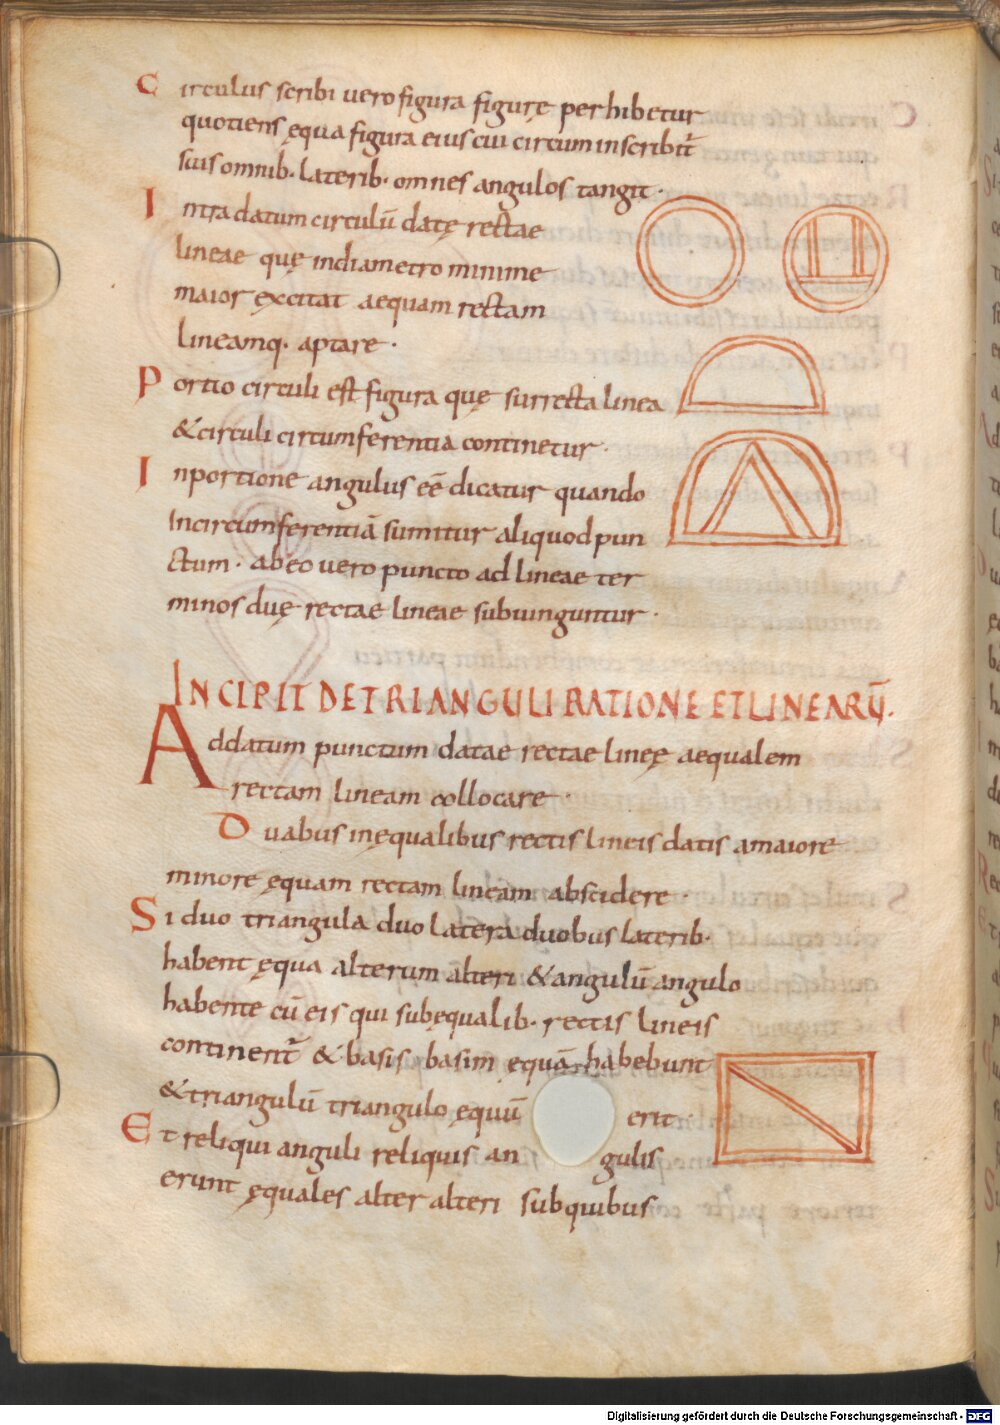 Circulus scribi vero figura figurę perhibetur
quotiens ęqua figura eius cui circum inscribit̄
suis omnib· laterib· omnes angulos tangit·
Intra datum circulū datę rectae
lineae quę indiametro minime
maior excitat aequam rectam
lineamq· aptare·
Portio circuli est figura quę surrecta linea
& circuli circumferentia continetur·
Inportione angulus eē dicatur quando
Incircumferentiā sumitur aliquod pun
ctum· ab eo vero puncto ad lineae ter
minos duę rectae lineae subiunguntur·
INCIPIT DE TRIANGULI RATIONE ET LINEARŪ·
Addatum punctum datae rectae lineę aequalem
rectam lineam collocare·
Duabus inęqualibus rectis lineis datis amaiore
minore ęquam rectam lineam abscidere
Si duo triangula duo latera duobus laterib·
habent ęqua alterum alteri & angulū angulo
habente cū eis qui subęqualib· rectis lineis
continent̄ & basis basim equā habebunt
& triangulū triangulo ęquū erit·
Et reliqui anguli reliquis an gulis
erunt ęquales alter alteri subquibus
Digitalisierung gefördert durch die Deutsche Forschungsgemeinschaft - DFG